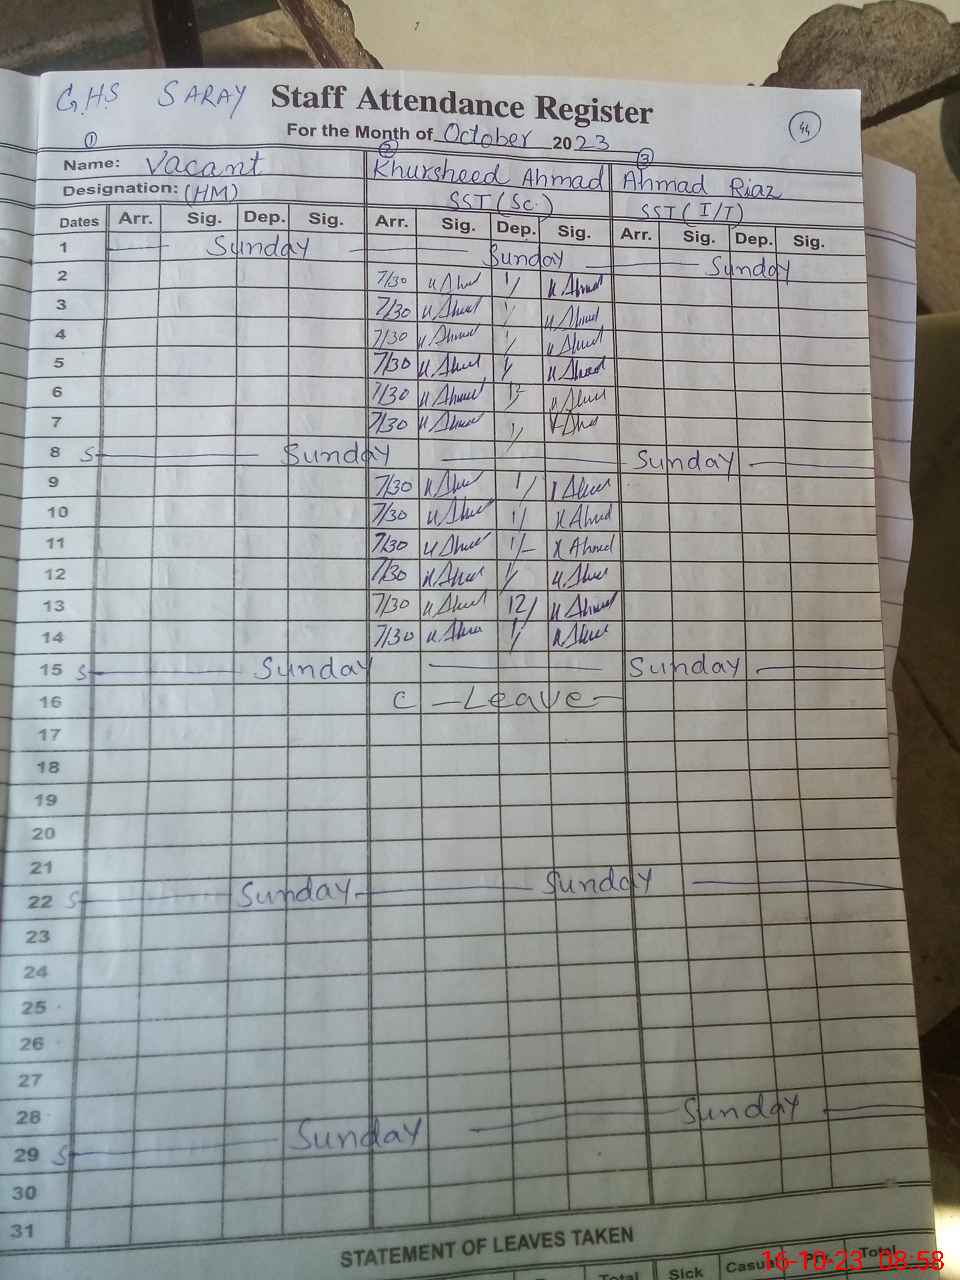 G.H.S SARAY Staff Attendance Register
For the Month of October 2023
44
1 2 3
Name: Vacant Khursheed Ahmad Ahmad Riaz
Designation: (HM) SST (Sc.) SST (I/T)
Dates Arr. Sig. Dep. Sig. Arr. Sig. Dep. Sig. Arr. Sig. Dep. Sig.
1 Sunday Sunday Sunday
2 7/30 K Ahmad 1/ K Ahmad
3 7/30 K Ahmad 1/ K Ahmad
4 7/30 K Ahmad 1/ K Ahmad
5 7/30 K Ahmad 1/ K Ahmad
6 7/30 K Ahmad 12/ K Ahmad
7 7/30 K Ahmad 1/ K Ahmad
8 S Sunday Sunday
9 7/30 K Ahmad 1/ K Ahmad
10 7/30 K Ahmad 1/ K Ahmad
11 7/30 K Ahmad 1/ K Ahmad
12 7/30 K Ahmad 1/ K Ahmad
13 7/30 K Ahmad 12/ K Ahmad
14 7/30 K Ahmad 1/ K Ahmad
15 S Sunday Sunday
16 C - Leave -
17
18
19
20
21
22 S Sunday Sunday
23
24
25
26
27
28
29 S Sunday Sunday
30
31
STATEMENT OF LEAVES TAKEN
Total Sick Casual Total
16-10-23 08:58